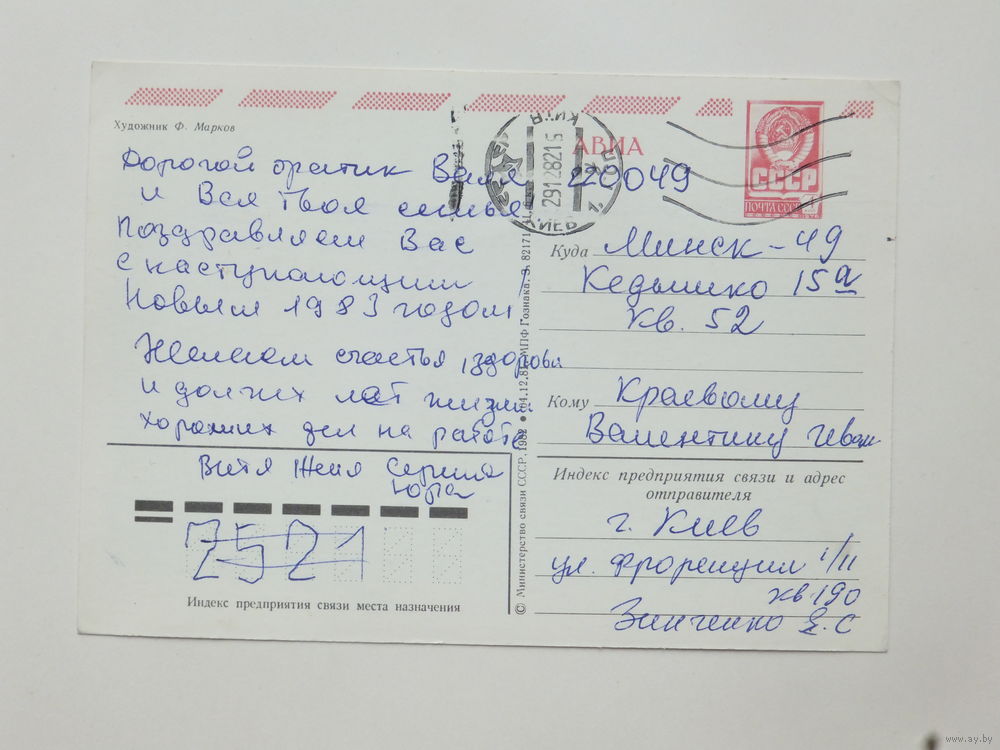 Художник Ф. Марков
АВИА
СССР
ПОЧТА СССР
КИЇВ
291282 16
КИЕВ
Дорогой братик Валя
и Вся твоя семья
Поздравляем Вас
с наступающим
Новым 1983 годом
Желаем счастья, здоровья
и долгих лет жизни
хороших дел на работе
Витя Женя Сергей
Юра
220049
Куда Минск-49
Кедышко 15а
кв. 52
Кому Краевому
Валентину Иван
Индекс предприятия связи и адрес
отправителя
г. Киев
ул. Флоренции 1/11
кв. 190
Зинченко Е. С
2521
Индекс предприятия связи места назначения
© Министерство связи СССР, 1982 МПФ Гознака. З. 82171
www.ay.by